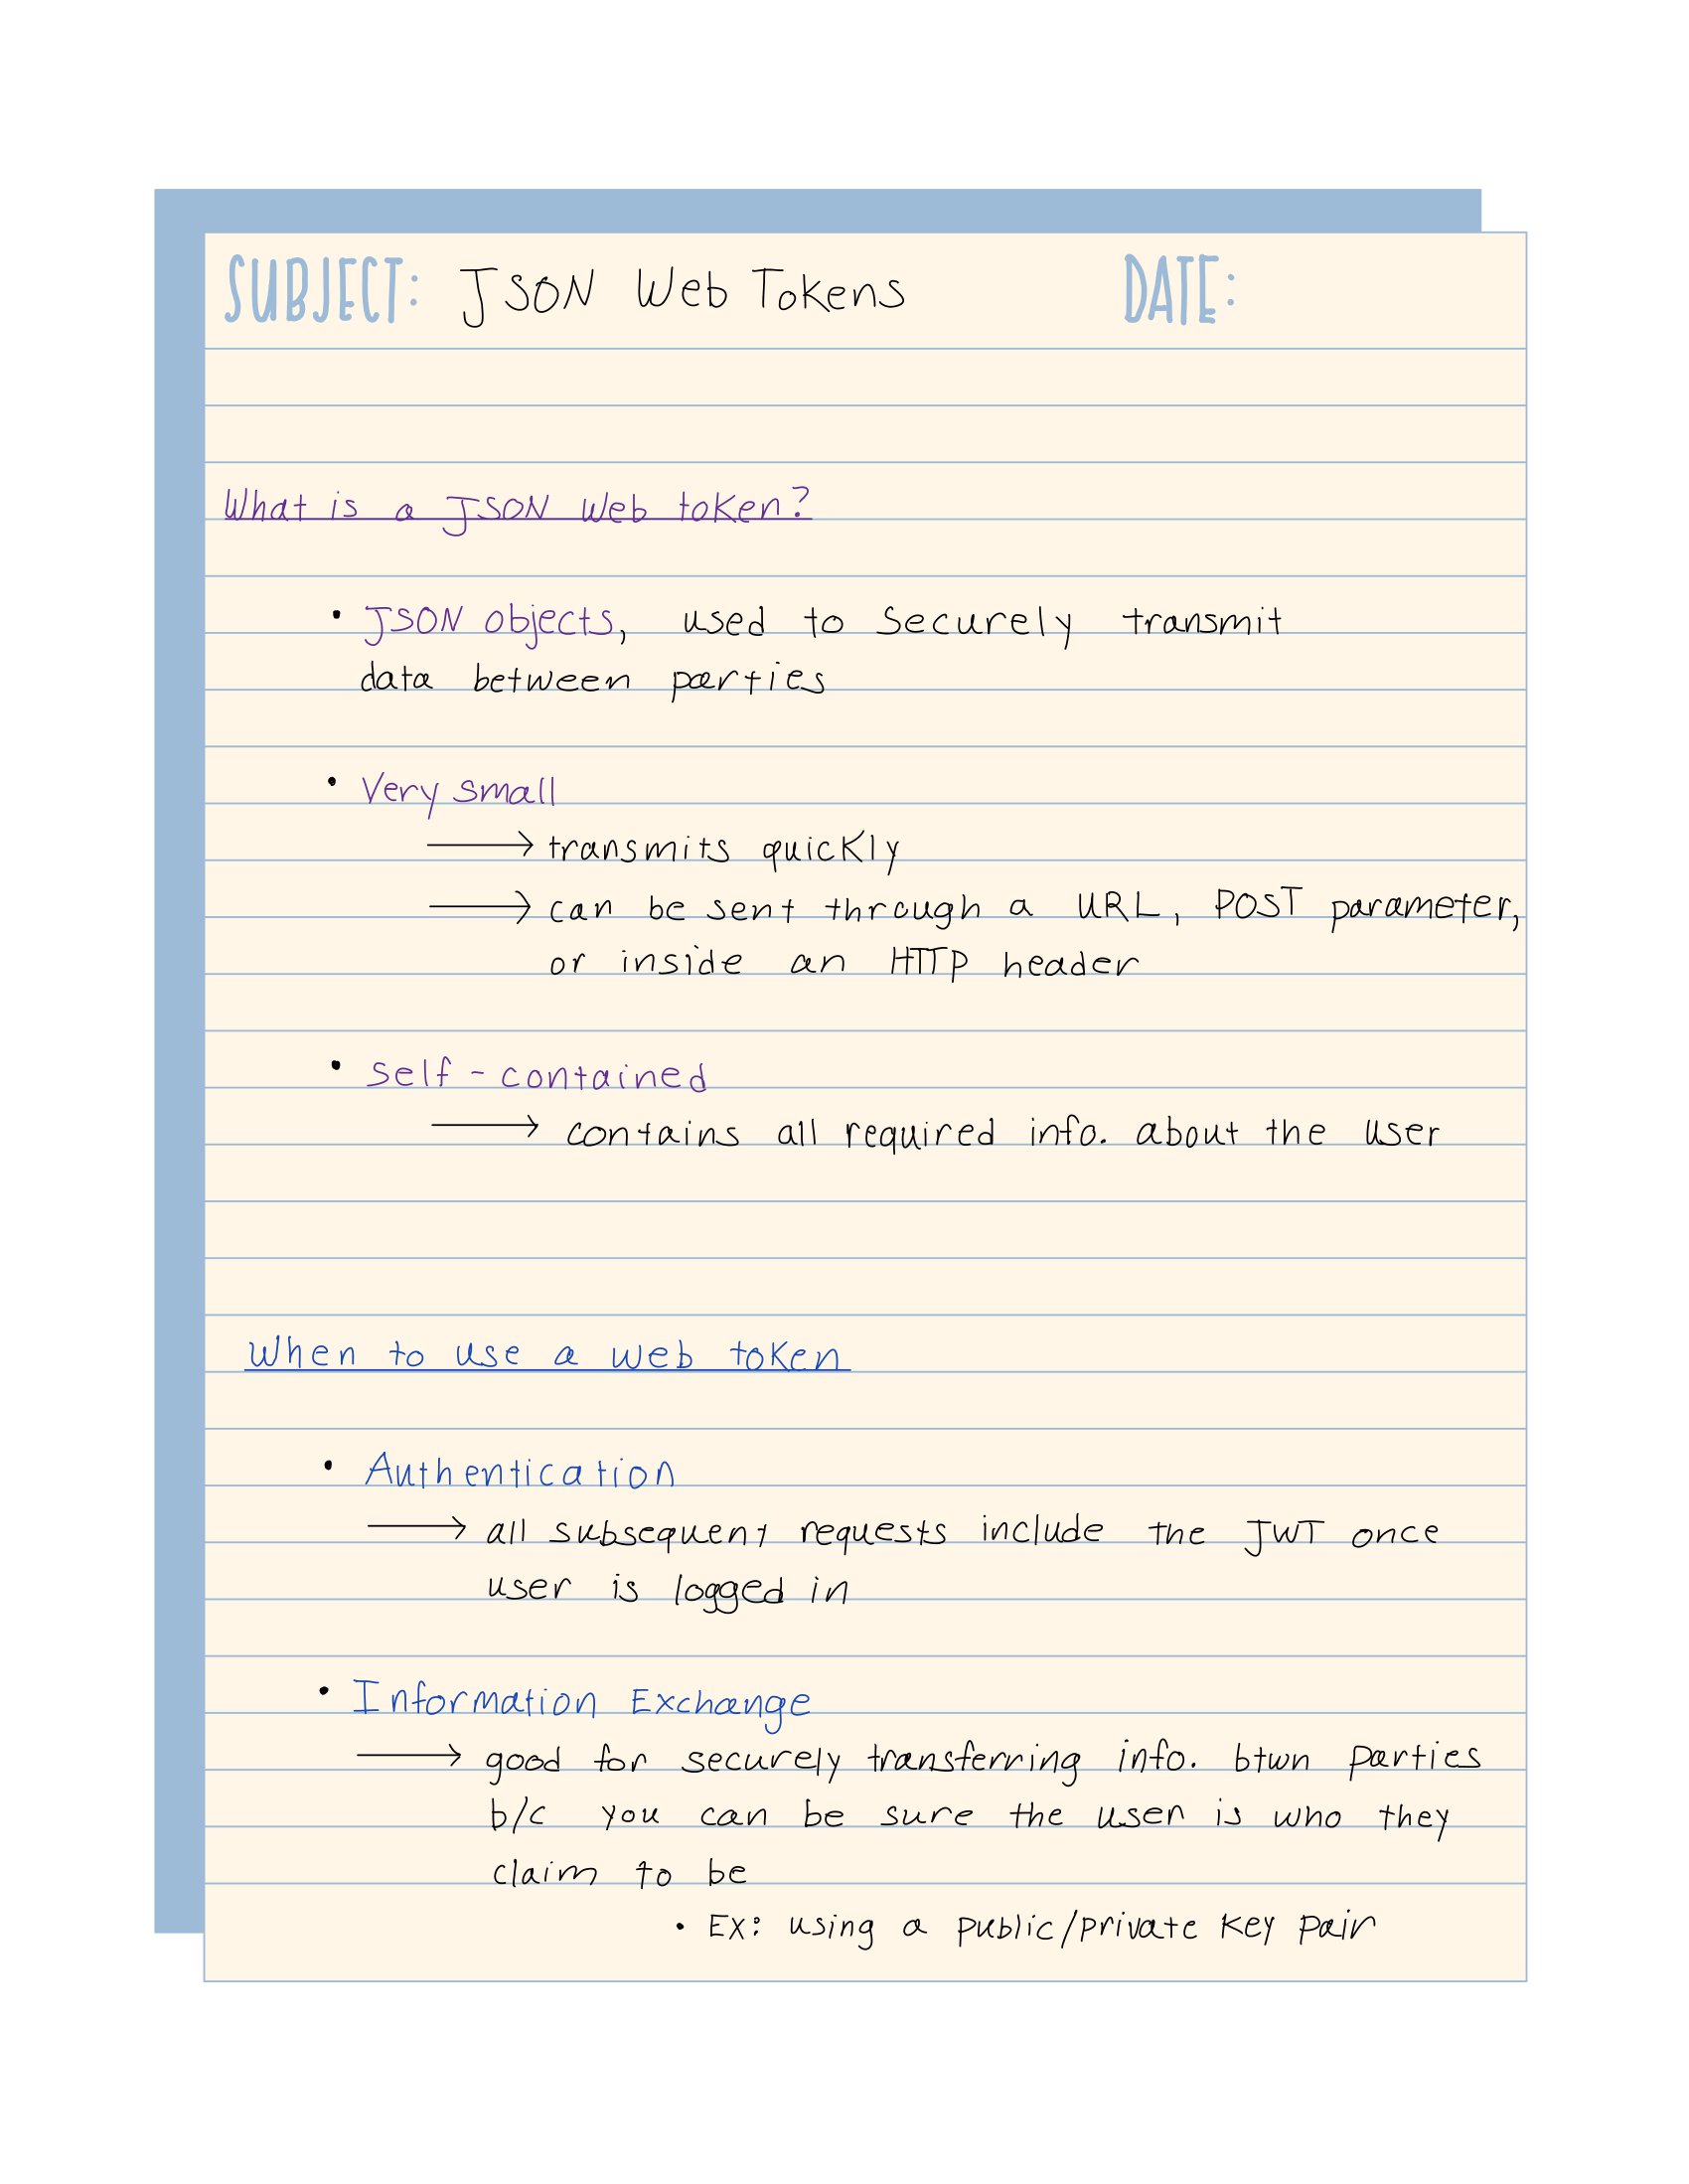 SUBJECT: JSON Web Tokens DATE:
What is a JSON Web token?
• JSON objects, used to securely transmit
data between parties
• Very small
→ transmits quickly
→ can be sent through a URL, POST parameter,
or inside an HTTP header
• Self-contained
→ contains all required info. about the user
When to use a web token
• Authentication
→ all subsequent requests include the JWT once
user is logged in
• Information Exchange
→ good for securely transferring info. btwn parties
b/c you can be sure the user is who they
claim to be
• Ex: using a public/private key pair